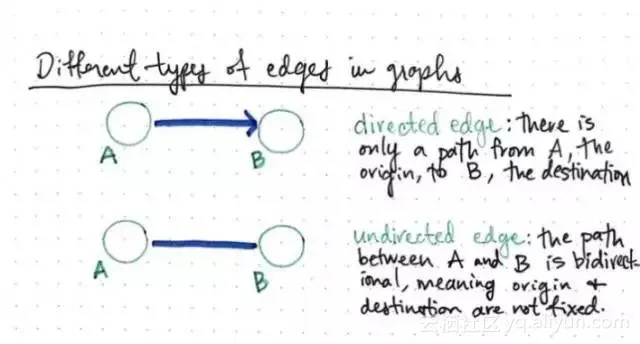 Different types of edges in graphs
A
B
directed edge: there is
only a path from A, the
origin, to B, the destination
A
B
undirected edge: the path
between A and B is bidirect-
ional, meaning origin +
destination are not fixed.
云栖社区 yq.aliyun.com